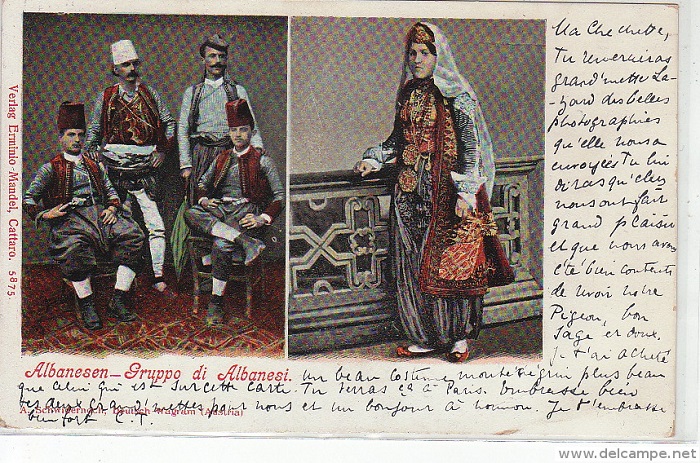 Verlag Erminio Mandel, Cattaro. 5875.
Ma Chérette,
Tu remercieras
grand'mette La-
-gard des belles
photographies
qu'elle nous a
envoyées Tu lui
diras qu'elles
nous ont fait
grand plaisir
et que nous avons
été bien contents
de revoir notre
Pigeon, bon
sage et doux.
Je t'ai acheté
Albanesen—Gruppo di Albanesi.
un beau costume monténégrin plus beau
que celui qui est sur cette carte. Tu verras ça à Paris. Embrasse bien
les deux grand'mettes pour nous et un bonjour à Je t'embrasse
A. Schwidernoch, Deutsch Wagram (Austria)
bien fort C.T.
delcampe.net